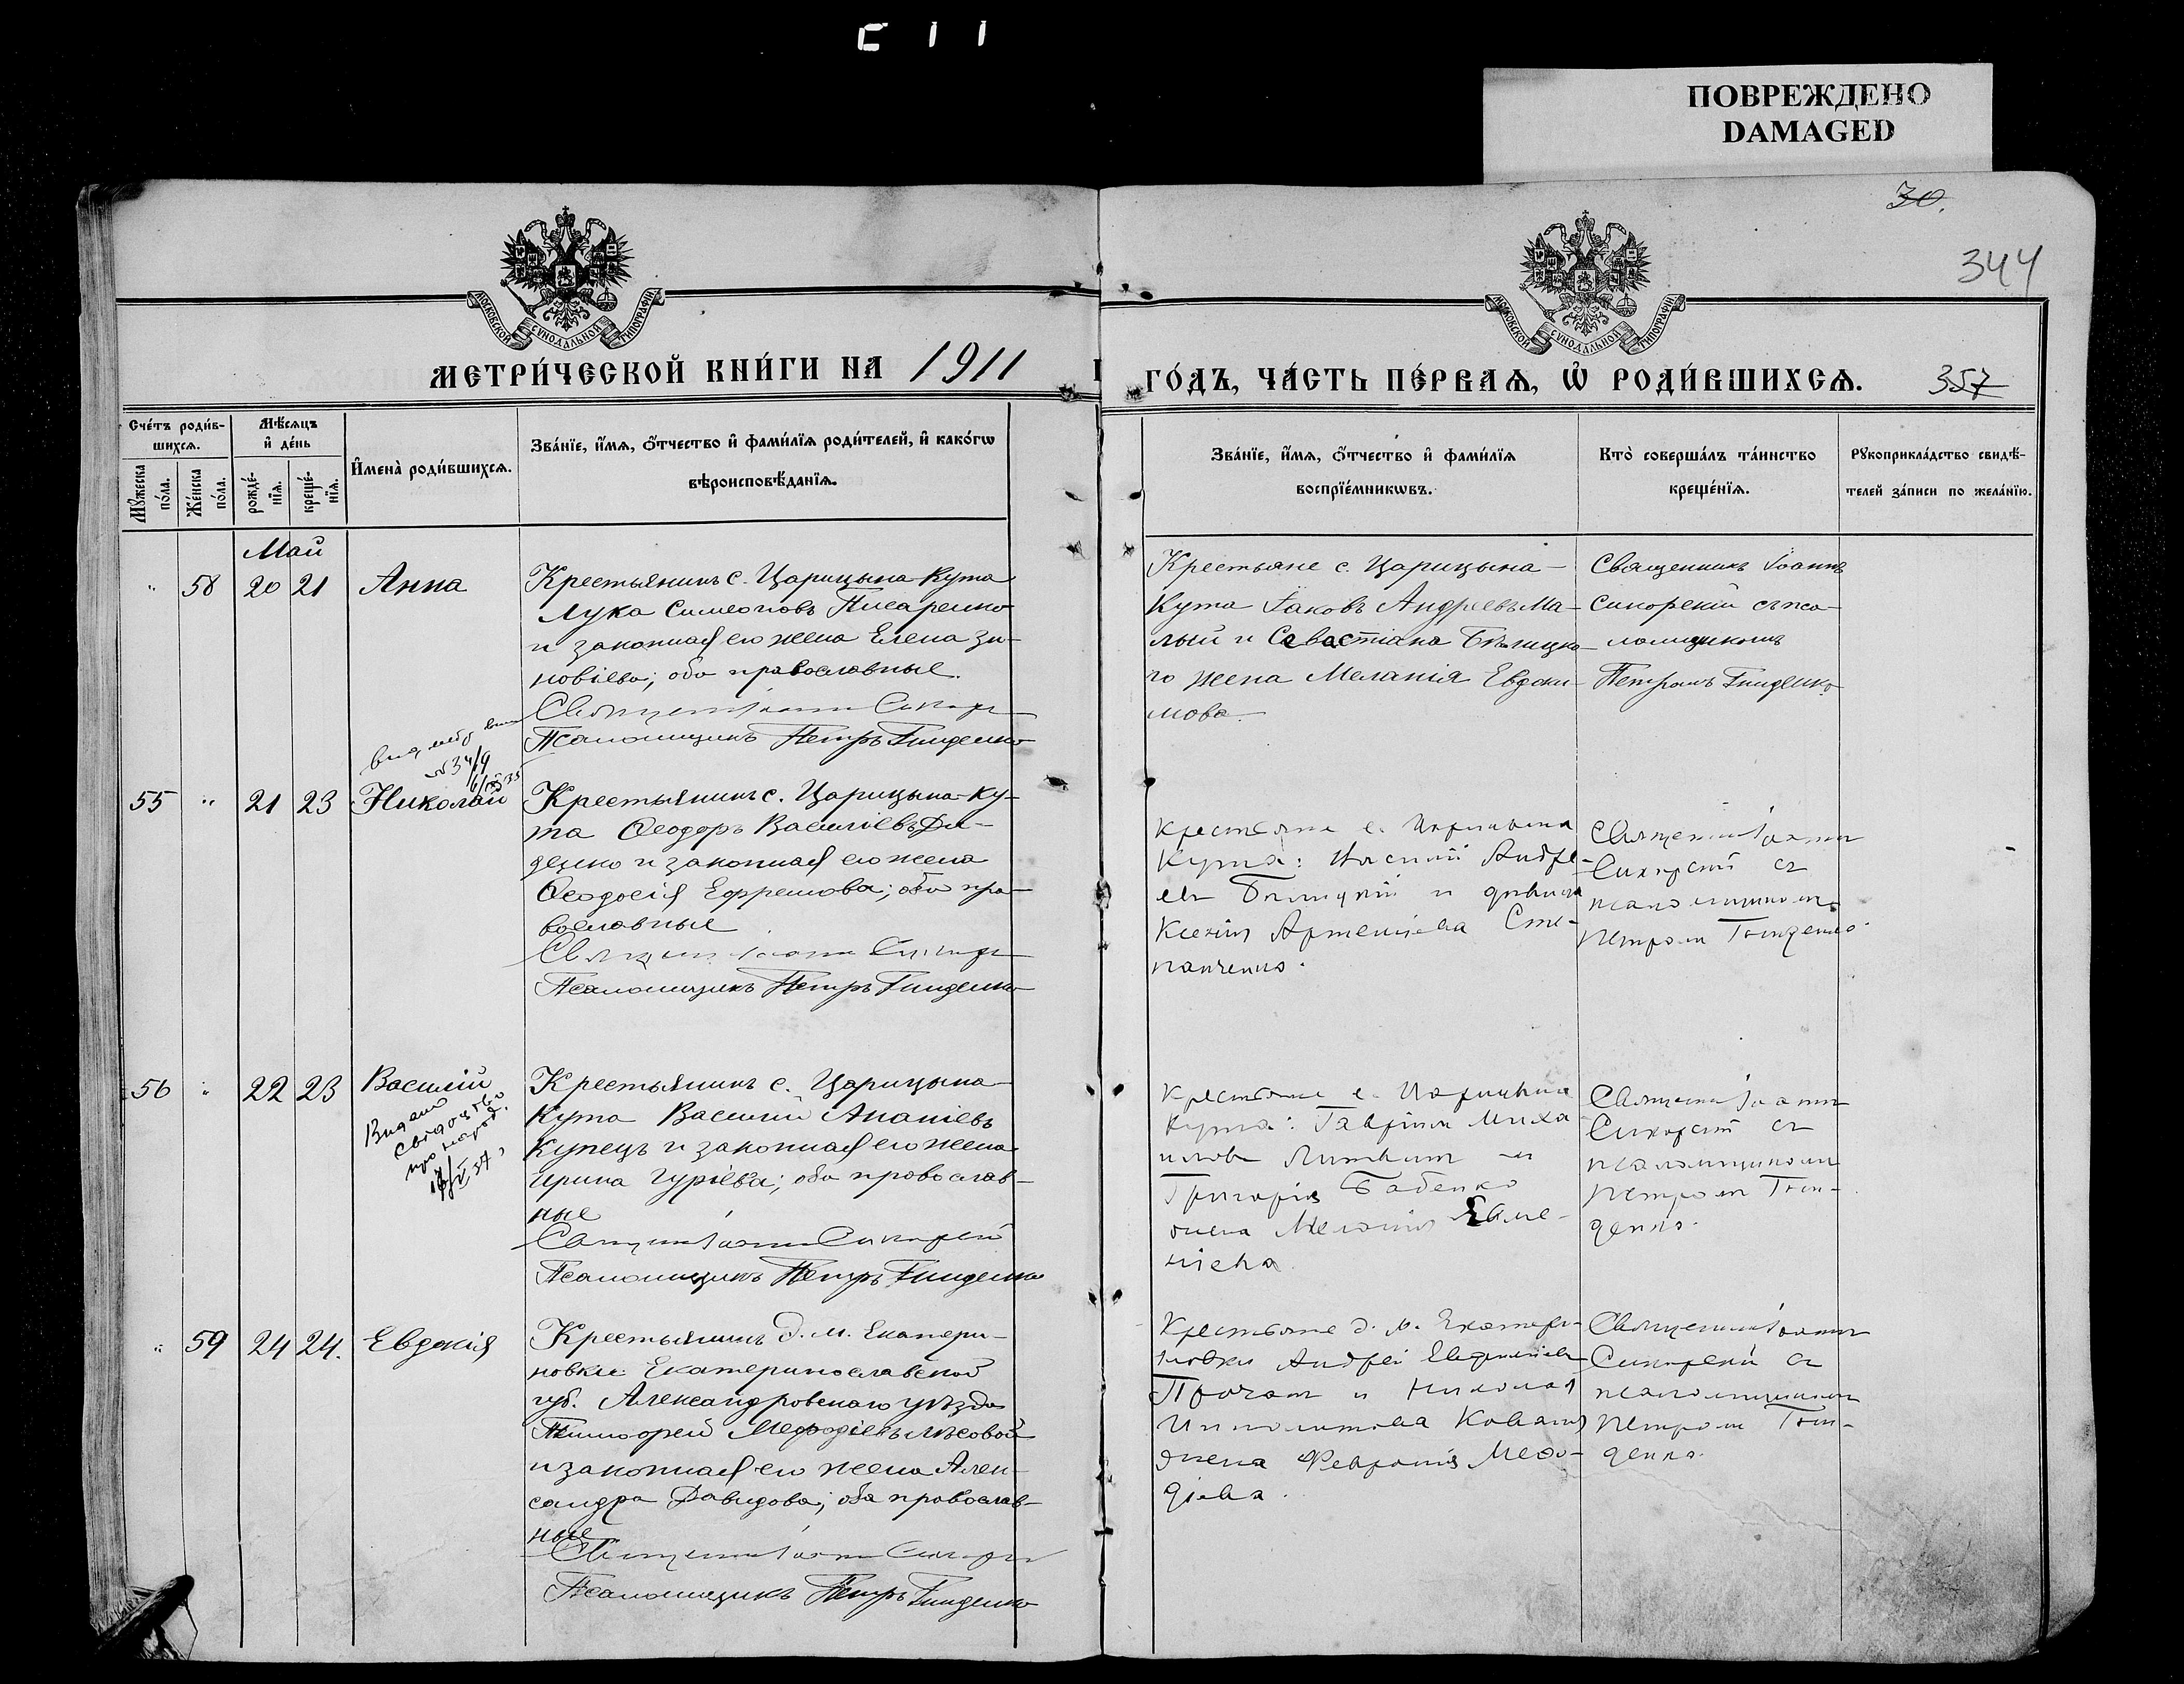 C 1 1
ПОВРЕЖДЕНО
DAMAGED
30.
344
МОСКОВСКОЙ СУНОДАЛЬНОЙ ТИПОГРАФІИ
МОСКОВСКОЙ СУНОДАЛЬНОЙ ТИПОГРАФІИ
МЕТРИ́ЧЕСКОЙ КНИ́ГИ НА 1911
ГО́ДЪ, ЧА́СТЬ ПЕ́РВАѦ, Ѡ҆ РОДИ́ВШИХСѦ.
357
Сче́тъ роди́в-
шихсѧ.
Мѣ́сѧцъ
и҆ де́нь
Мꙋ́жеска
по́ла.
Же́нска
по́ла.
рожде́-
нїѧ.
креще́-
нїѧ.
И҆мена̀ роди́вшихсѧ.
Зва́нїе, и҆́мѧ, ѻ҆́тчество и҆ фами́лїѧ роди́телей, и҆ како́гѡ
вѣроисповѣ́данїѧ.
Зва́нїе, и҆́мѧ, ѻ҆́тчество и҆ фами́лїѧ
воспрїе́мникѡвъ.
Кто̀ соверша́лъ та́инство
креще́нїѧ.
Рꙋкоприкла́дство свидѣ́-
телей за́писи по жела́нїю.
Май
" 58 20 21 Анна
Крестьянинъ с. Царицына Кута
Лука Симеоновъ Писаренко
и законная его жена Елена Зи-
новіева; оба православные.
Псаломщикъ Петръ Гниденко
Крестьяне с. Царицына-
Кута Іаковъ Андреевъ Ма-
лый и Севастіана Бѣлицко-
го жена Меланія Евдоки-
мова.
Священникъ Іоаннъ
Сикорскій съ пса-
ломщикомъ
Петромъ Гниденко
№ 34/9
55 " 21 23 Николай
Крестьянинъ с. Царицына-Ку-
та Ѳеодоръ Васильевъ Ди-
денко и законная его жена
Ѳеодосія Ефремова; оба пра-
вославные
Псаломщикъ Петръ Гниденко
Крестьяне с. Царицына
Кута: Василій Андре-
евъ Бѣлицкій и дѣвица
Ксенія Артеміева Сте-
панченко.
Священникъ Іоаннъ
Сикорскій съ
псаломщикомъ
Петромъ Гниденко.
56 " 22 23 Василій
Видано
свідоцтво
про народ.
Крестьянинъ с. Царицына-
Кута Василій Ананіевъ
Купецъ и законная его жена
Ирина Гуріева; оба православ-
ные
Священникъ Іоаннъ Сикорскій
Псаломщикъ Петръ Гниденко
Крестьяне с. Царицына
Кута: Гавріилъ Миха
иловъ Литвинъ и
Григорія Бабенко
жена Меланія
ніева.
Священникъ Іоаннъ
Сикорскій съ
псаломщикомъ
Петромъ Гни-
денко.
" 59 24 24. Евдокія
Крестьянинъ д. м. Екатери-
новки Екатеринославской
губ. Александровскаго уѣзда
Тимоѳей Меѳодіевъ Лѣсовой
и законная его жена Алек-
сандра Давидова; оба православ-
ные
Псаломщикъ Петръ Гниденко
Крестьяне д. м. Екатери-
новки Андрей
и Николая
Ипполитова
жена Февронія Меѳо-
діева.
Священникъ Іоаннъ
Сикорскій съ
псаломщикомъ
Петромъ Гни-
денко.